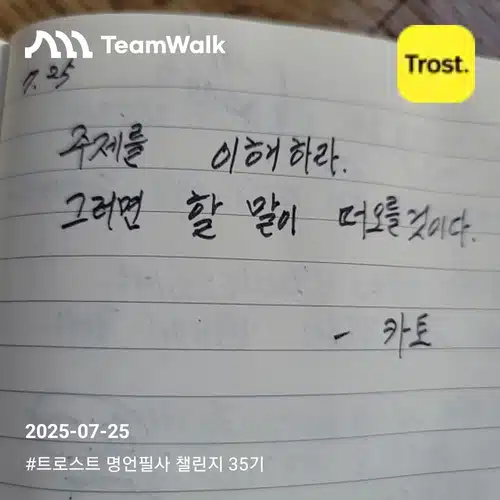 TeamWalk
Trost.
7.25
주제를 이해하라.
그러면 할 말이 떠오를것이다.
- 카토
2025-07-25
#트로스트 명언필사 챌린지 35기